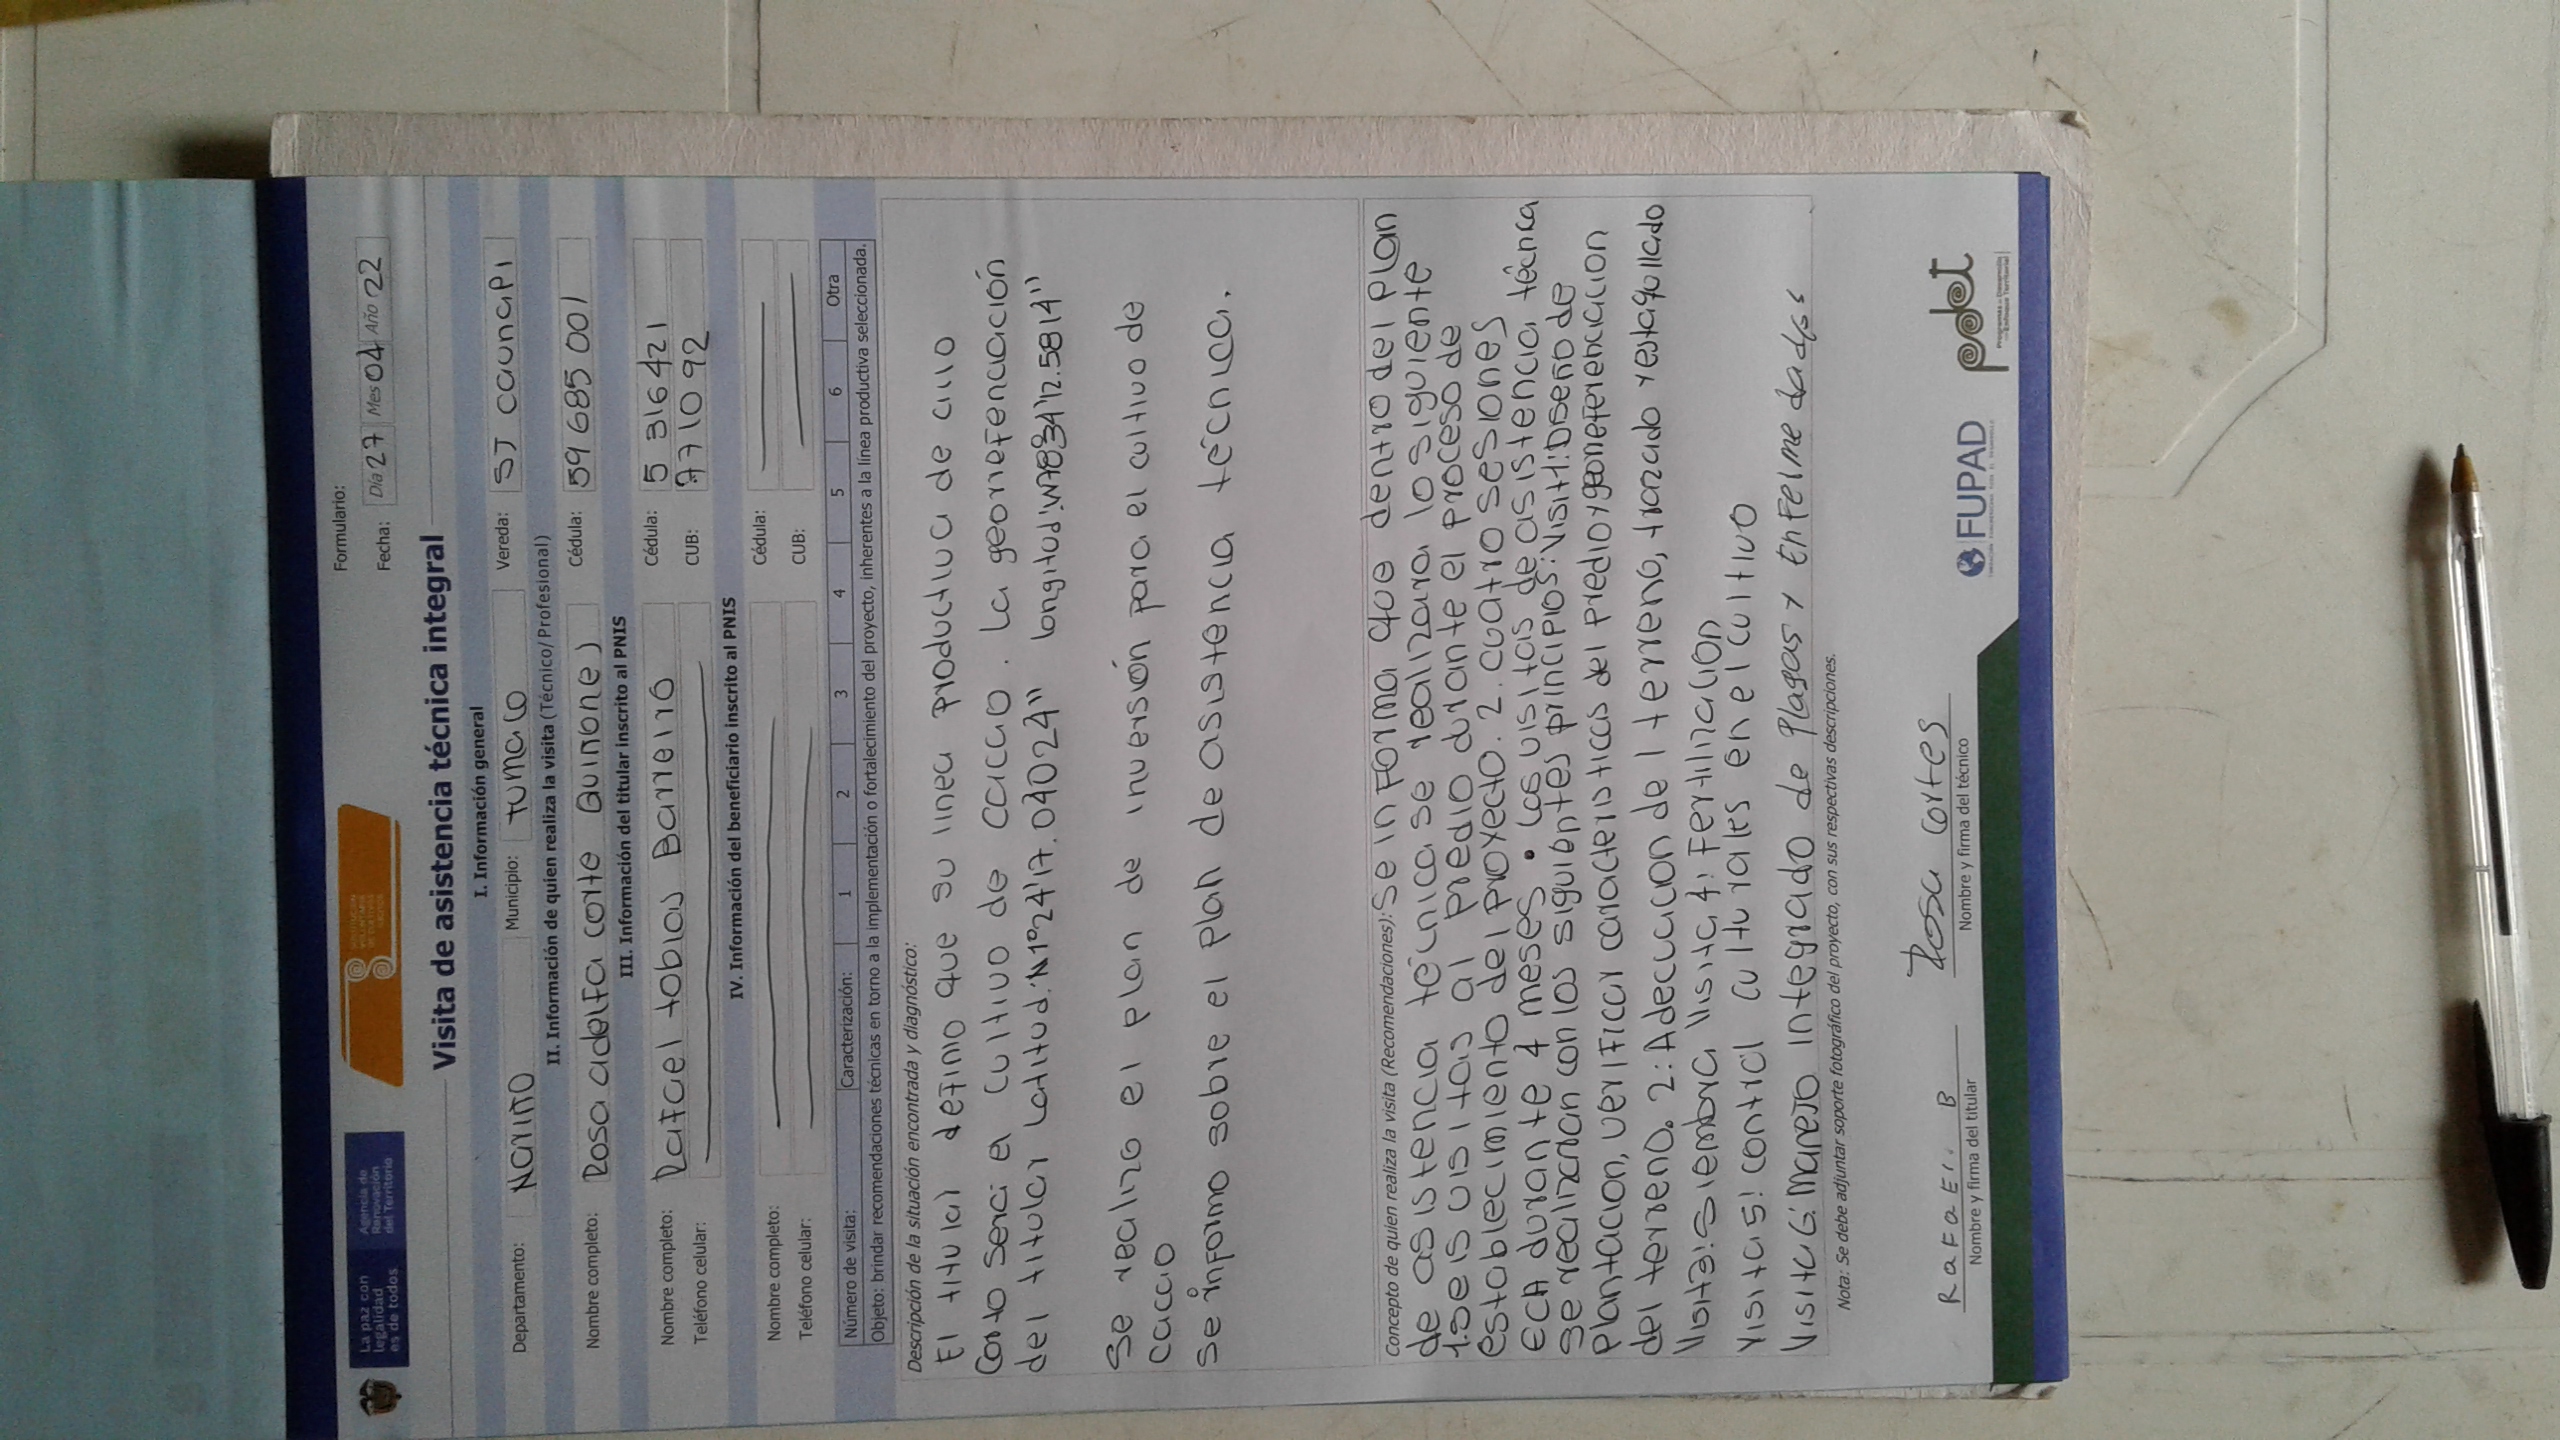 La paz con
legalidad
es de todos
Agencia de
Renovación
del Territorio
SUSTITUCIÓN
VOLUNTARIA
DE CULTIVOS
ILÍCITOS
Formulario:
Fecha: Día 27 Mes 04 Año 22
Visita de asistencia técnica integral
I. Información general
Departamento: Nariño Municipio: tumaco Vereda: SJ caunapi
II. Información de quien realiza la visita (Técnico/Profesional)
Nombre completo: Rosa adelfa corte Quiñone) Cédula: 59 685 001
III. Información del titular inscrito al PNIS
Nombre completo: Rafael tobias Barreiro Cédula: 5 316 421
Teléfono celular: CUB: 771092
IV. Información del beneficiario inscrito al PNIS
Nombre completo: Cédula:
Teléfono celular: CUB:
Número de visita: Caracterización: 1 2 3 4 5 6 Otra
Objeto: brindar recomendaciones técnicas en torno a la implementación o fortalecimiento del proyecto, inherentes a la línea productiva seleccionada.
Descripción de la situación encontrada y diagnóstico:
El titular definio que su linea productiva de ciclo
Corto sera el cultivo de cacao. La georreferenciación
del titular Latitud: N1°24'17.04024" longitud: W78°34'12.5814"
Se realizo el plan de inversión para el cultivo de
cacao
Se informo sobre el plan de asistencia técnica.
Concepto de quien realiza la visita (Recomendaciones): Se informa que dentro del plan
de asistencia técnica se realizara lo siguiente
1. Seis visitas al predio durante el proceso de
establecimiento del proyecto. 2. cuatro sesiones
ECA durante 4 meses. Las visitas de asistencia técnica
se realizaran con los siguientes principios: Visit1: Diseño de
plantacion, verificar caracteristicas del predio y georreferenciacion
del terreno. 2: Adecuacion del terreno, trazado y
Visita3: Siembra Visita 4: Fertilizacion
Visita 5: control culturales en el cultivo
Visita 6: manejo integrado de plagas y enfermedades
Nota: Se debe adjuntar soporte fotográfico del proyecto, con sus respectivas descripciones.
RaFaEl. B Rosa Cortes
Nombre y firma del titular Nombre y firma del técnico
FUPAD
pdet
Programas de Desarrollo
con Enfoque Territorial